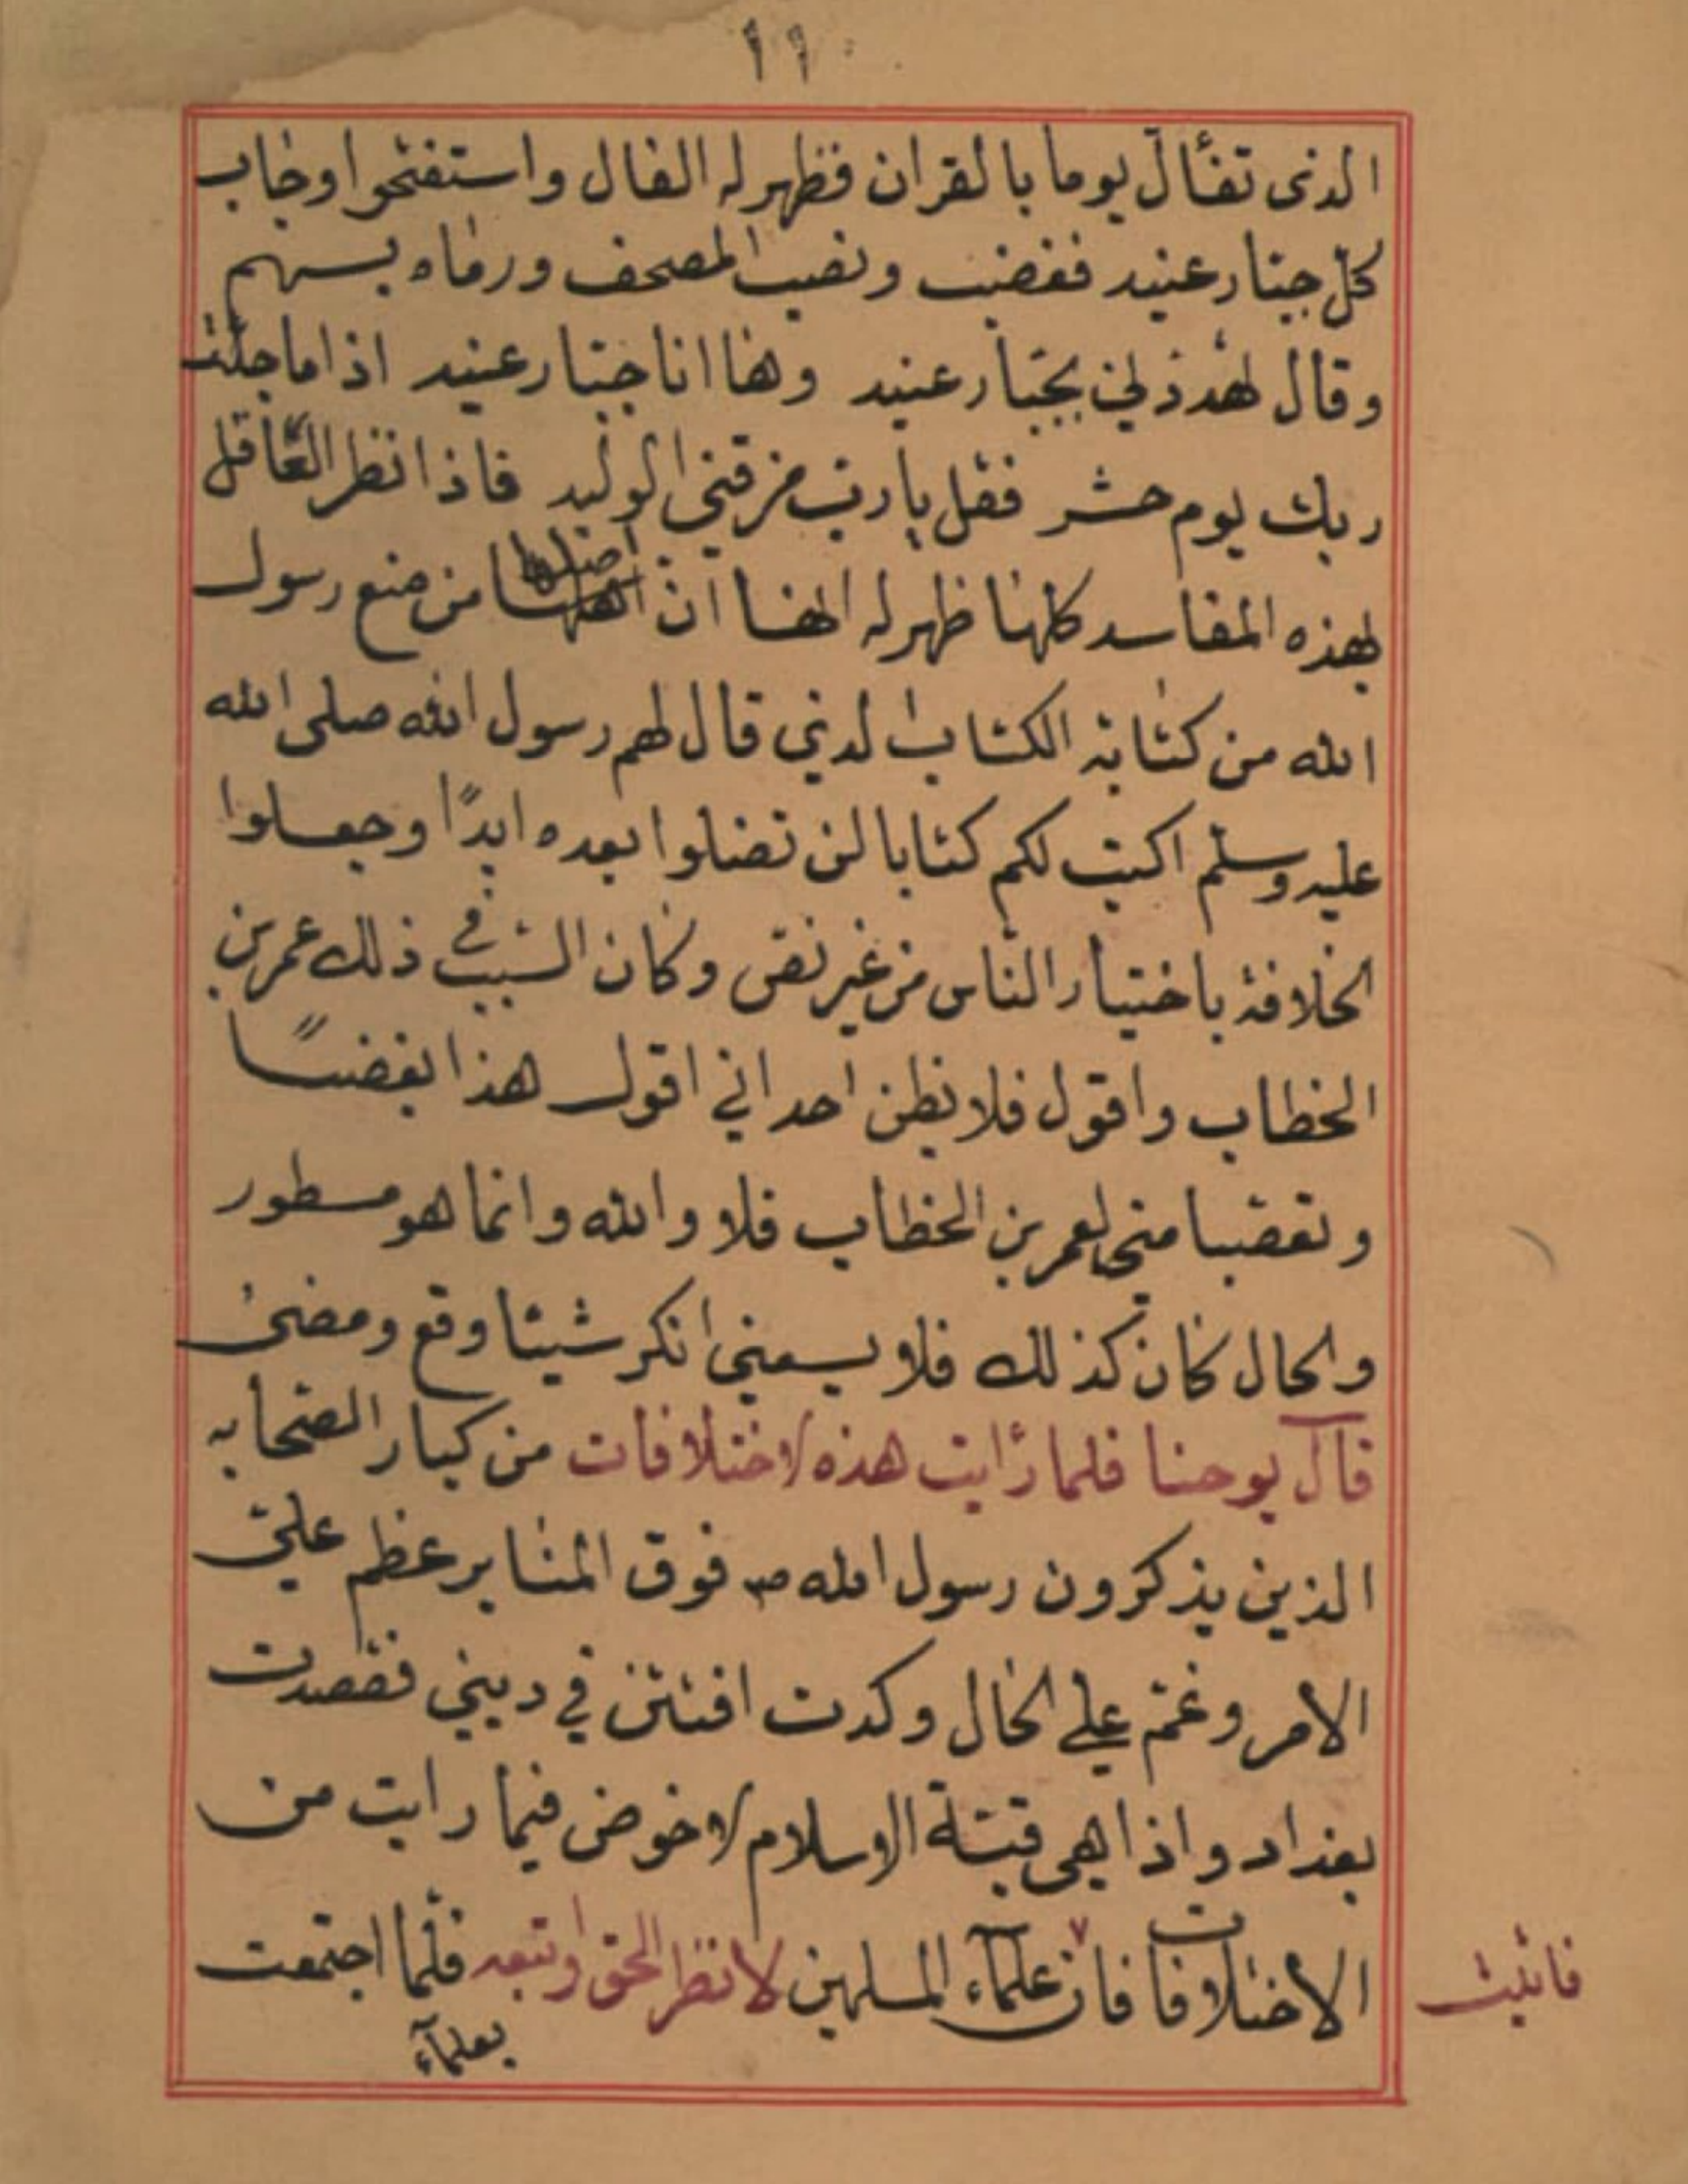 ١١
الذى تفأل يوما بالقران فظهر له الفال واستفتحوا وخاب
كل جبار عنيد فغضب ونصب المصحف ورماه بسهم
وقال تهددني بجبار عنيد وها انا جبار عنيد اذا ما جئت
ربك يوم حشر فقل يا رب مزقني الوليد فاذا نظر العاقل
لهذه المفاسد كلها ظهر له انها ان اصلها من منع رسول
الله من كتابة الكتاب الذي قال لهم رسول الله صلى الله
عليه وسلم اكتب لكم كتابا لن تضلوا بعده ابدًا وجعلوا
الخلافة باختيار الناس من غير نص وكان السبب في ذلك عمر بن
الخطاب واقول فلا يظن احد اني اقول هذا بغضًا
وتعصبا مني لعمر بن الخطاب فلا والله وانما هو مسطور
والحال كان كذلك فلا يسعني انكر شيئا وقع ومضى
قال يوحنا فلما رايت هذه الاختلافات من كبار الصحابه
الذين يذكرون رسول الله ص فوق المنابر عظم علي
الامر وغم علي الحال وكدت افتتن في ديني فقصدت
بغداد واذا هي قبة الاسلام لاخوض فيما رايت من
الاختلافات فان علماء المسلمين لانظر الحق واتبعه فلما اجتمعت
فاتيت
بعلمآء